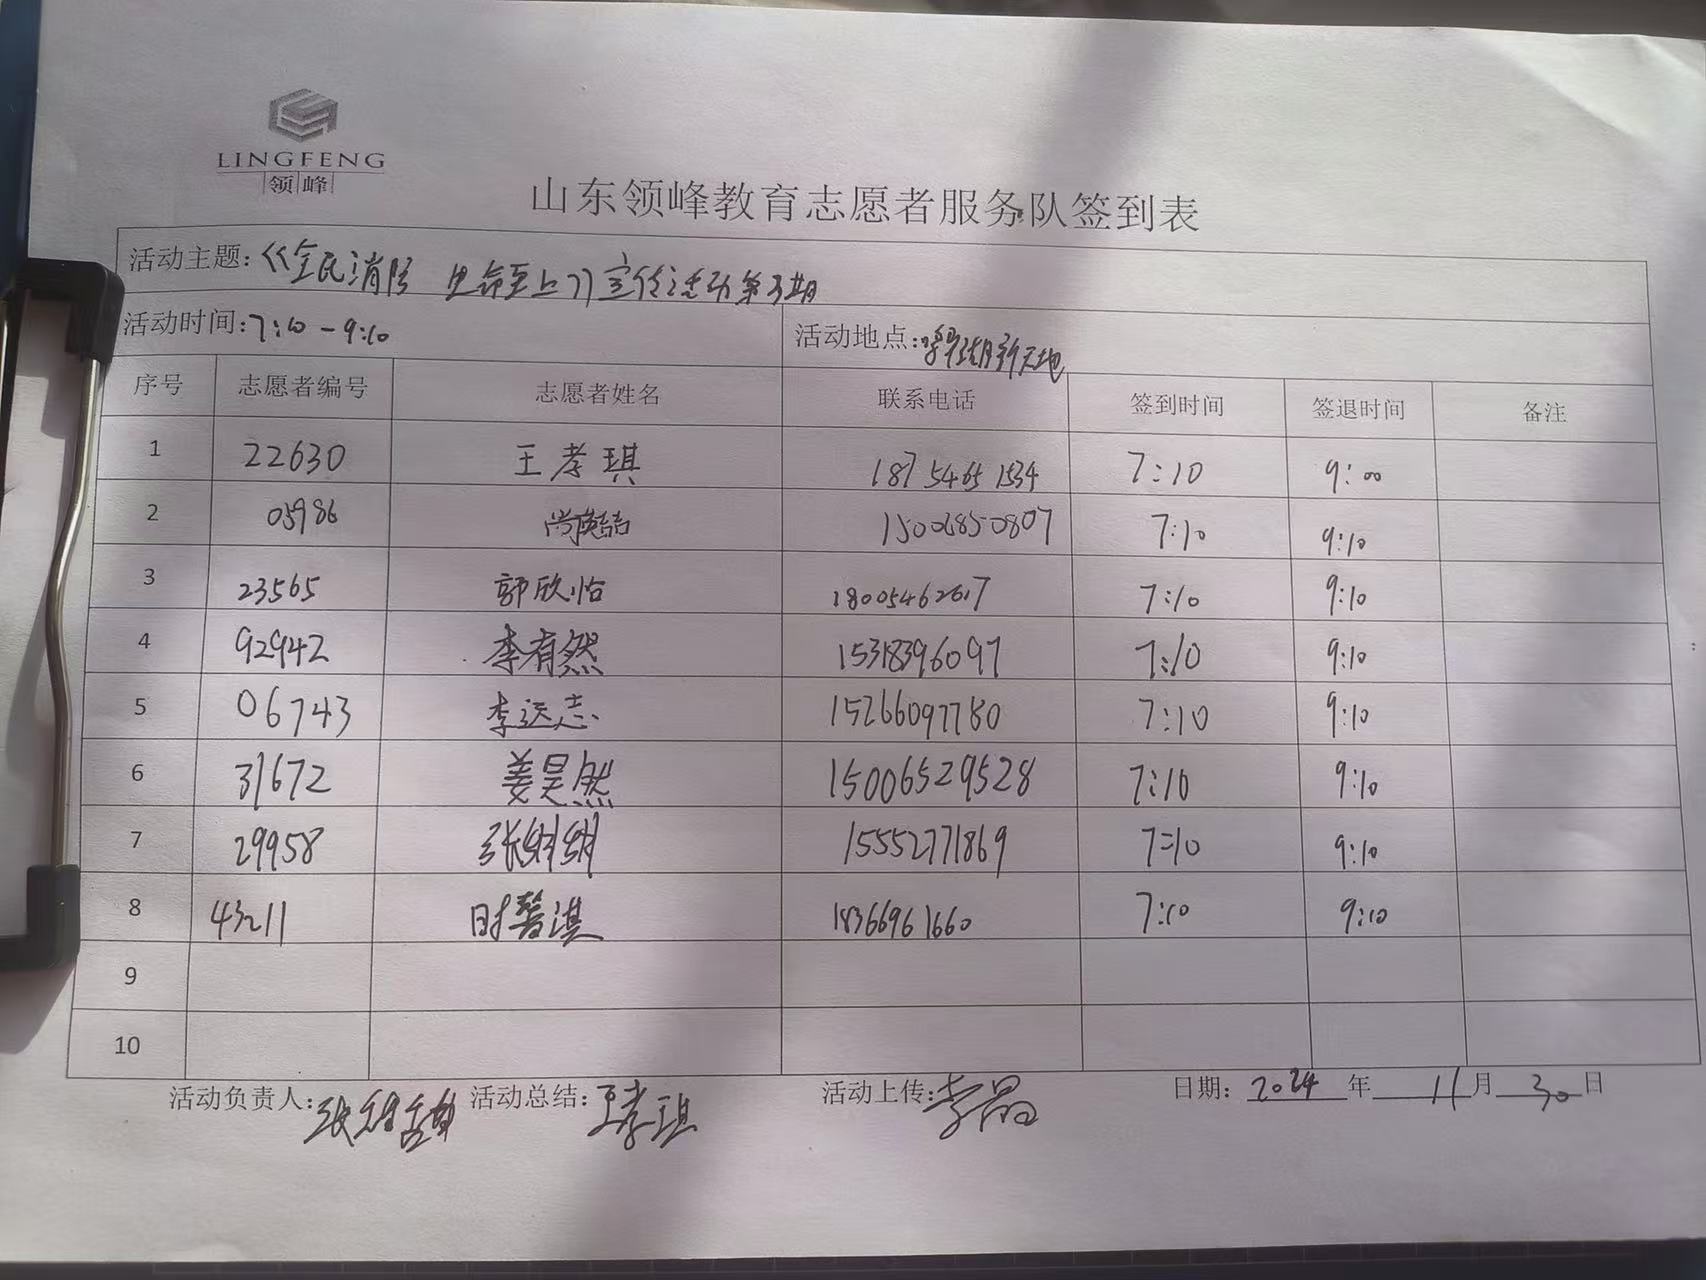 LINGFENG
领峰
山东领峰教育志愿者服务队签到表
活动主题:《全民消防 生命至上》宣传活动第3期
活动时间:7:10-9:10 活动地点:新天地
序号 志愿者编号 志愿者姓名 联系电话 签到时间 签退时间 备注
1 22630 王孝琪 18754651534 7:10 9:00
2 05986 尚 15006850807 7:10 9:10
3 23565 郭欣怡 18005462617 7:10 9:10
4 92942 李有然 15318396097 7:10 9:10
5 06743 李远志 15266097780 7:10 9:10
6 31672 姜昊然 15006529528 7:10 9:10
7 29958 张 15552771869 7:10 9:10
8 43211 时馨淇 18366961660 7:10 9:10
9
10
活动负责人:张 活动总结:王孝琪 活动上传:李晶 日期:2024年11月30日